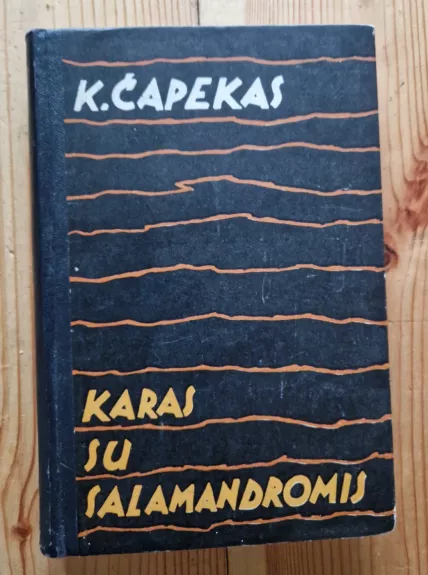 K. ČAPEKAS
KARAS
SU
SALAMANDROMIS